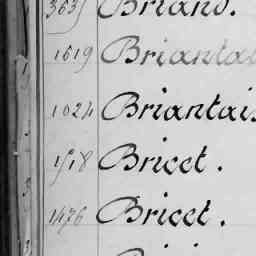 3635 Briand.
1619 Briantais
1024 Briantais
1518 Bricet.
1476 Bricet.